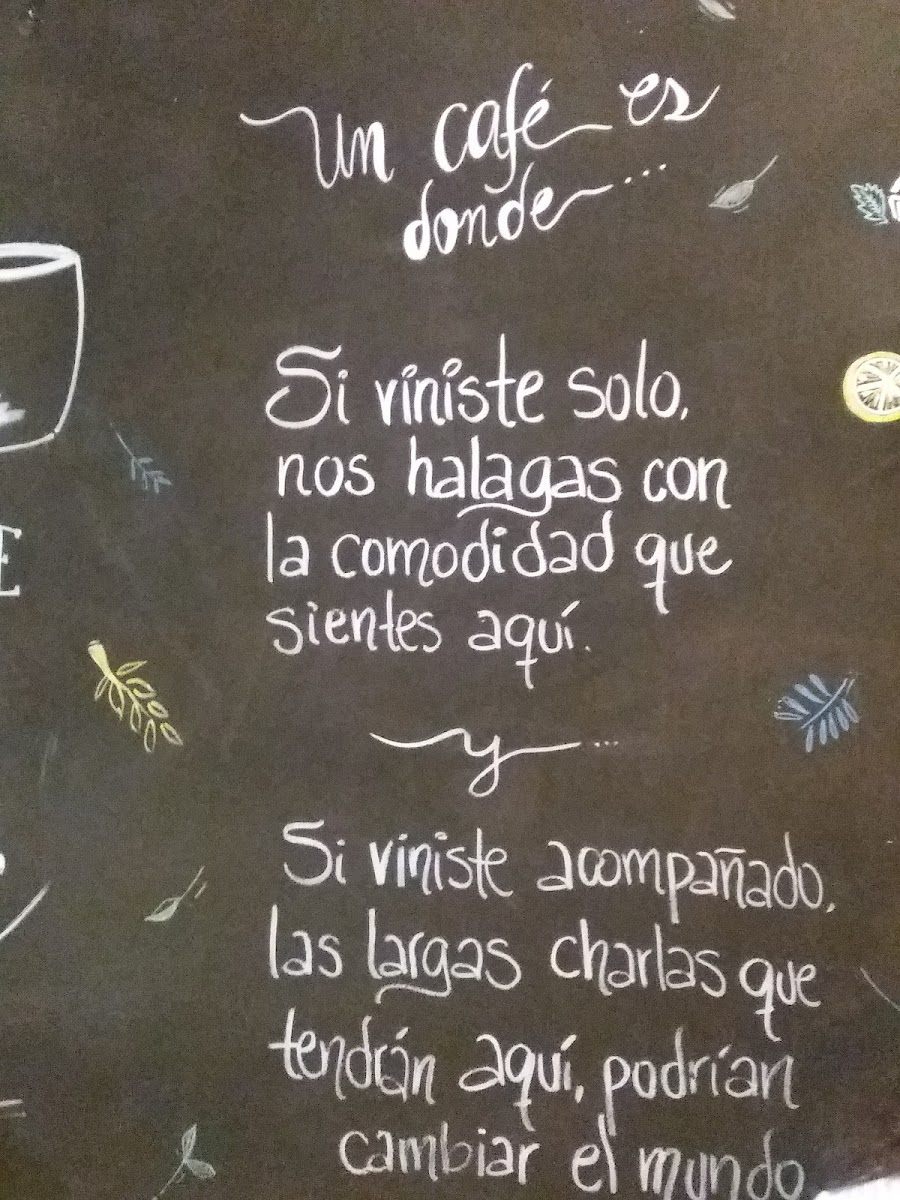 Un café es
donde...
Si viniste solo,
nos halagas con
la comodidad que
sientes aquí.
y...
Si viniste acompañado,
las largas charlas que
tendrán aquí, podrían
cambiar el mundo
E